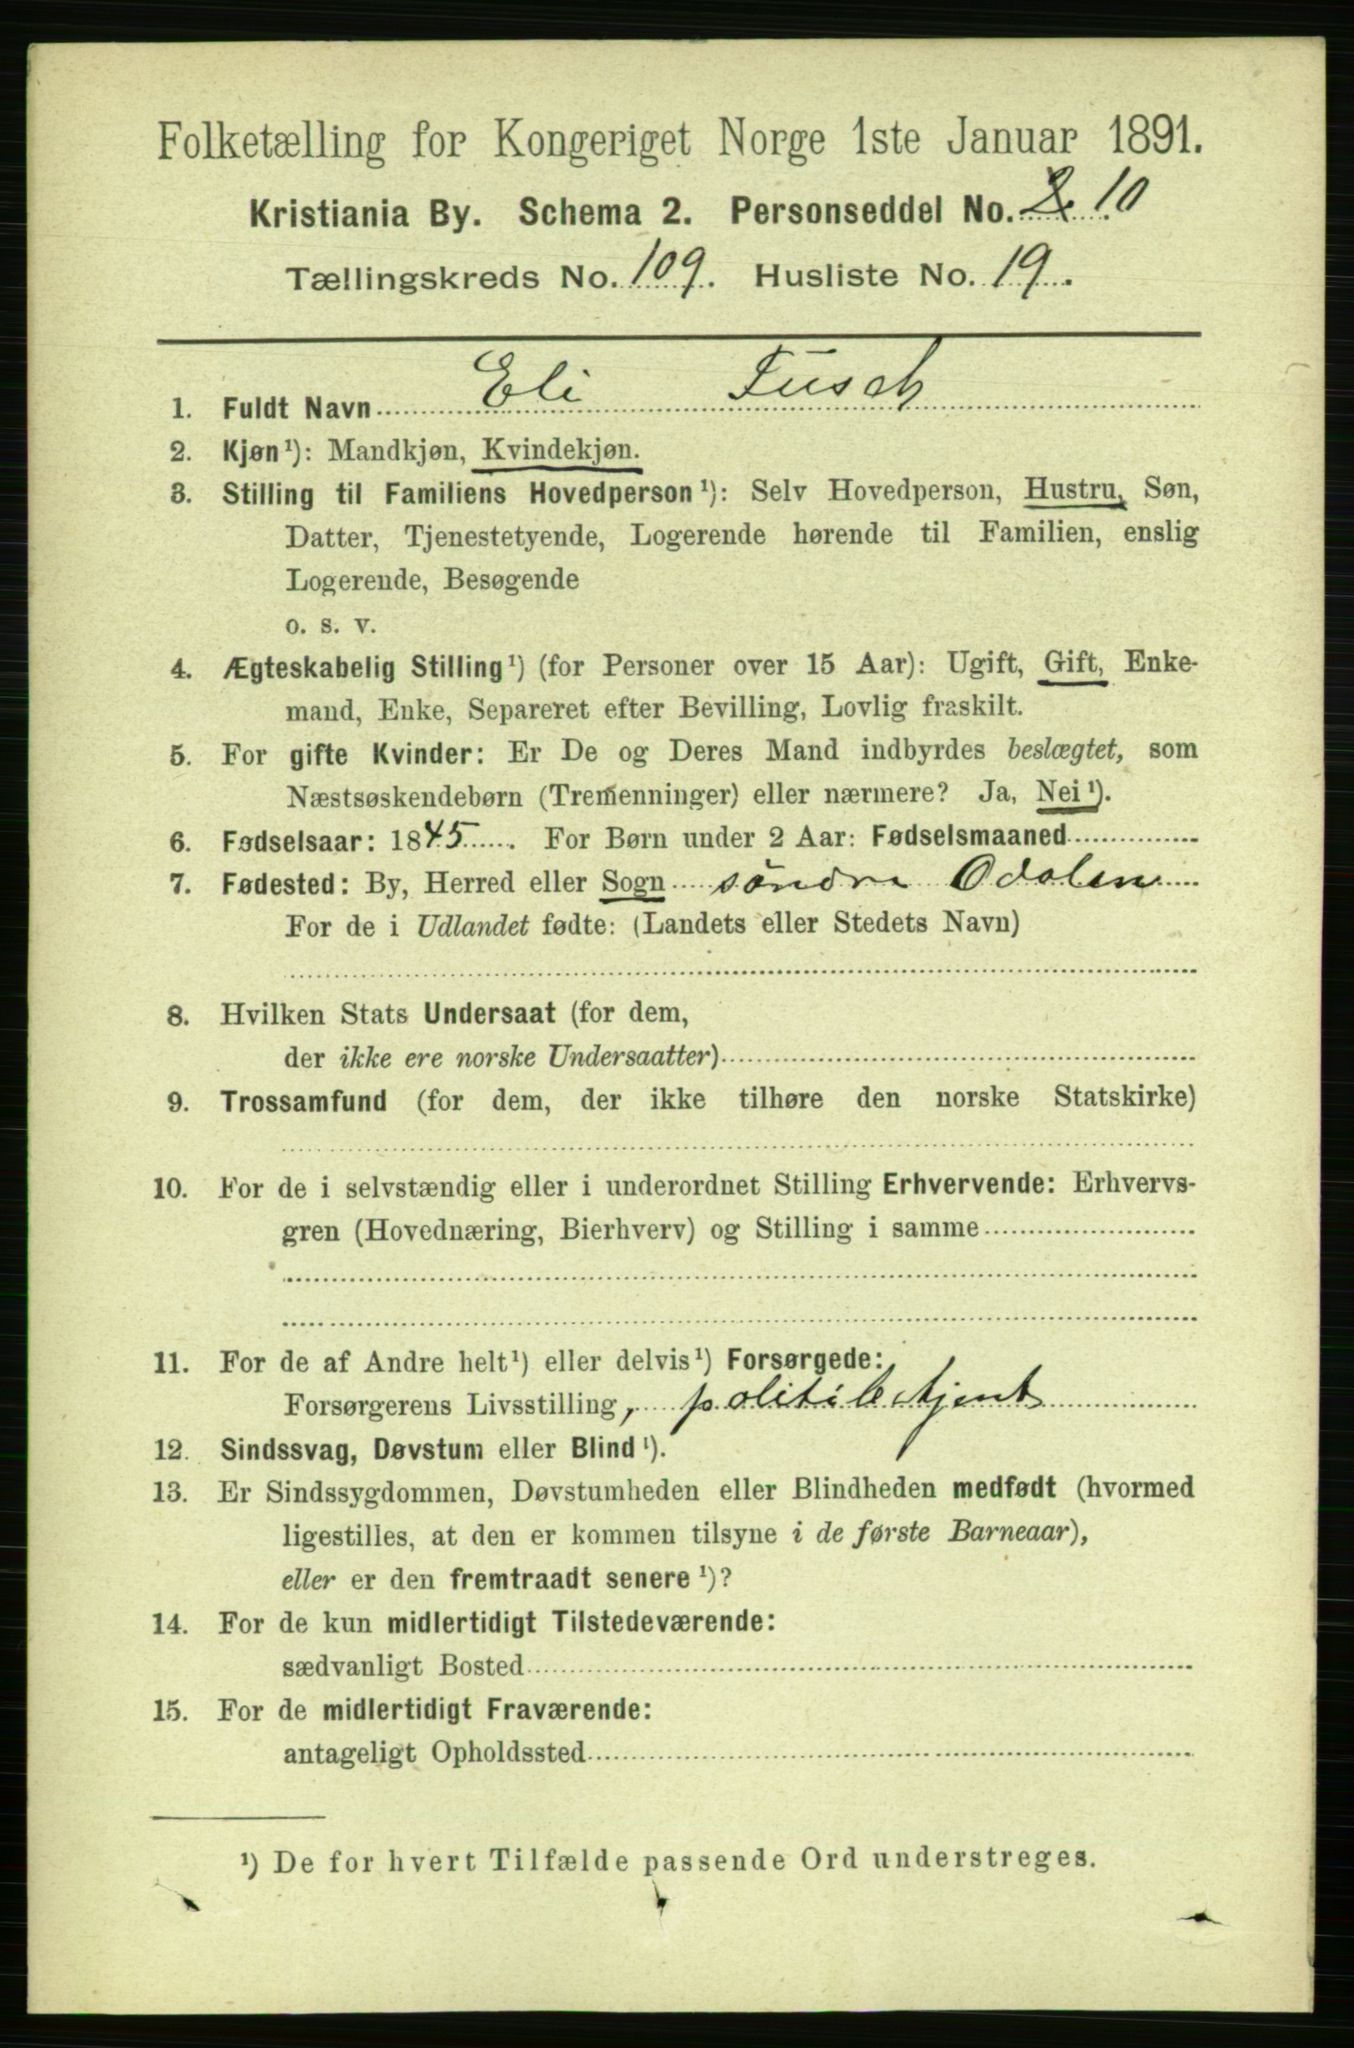 Folketælling for Kongeriget Norge 1ste Januar 1891.
Kristiania By. Schema 2. Personseddel No. 10
Tællingskreds No. 109. Husliste No. 19.
1. Fuldt Navn Eli
2. Kjøn¹): Mandkjøn, Kvindekjøn.
3. Stilling til Familiens Hovedperson¹): Selv Hovedperson, Hustru, Søn,
Datter, Tjenestetyende, Logerende hørende til Familien, enslig
Logerende, Besøgende
o. s. v.
4. Ægteskabelig Stilling¹) (for Personer over 15 Aar): Ugift, Gift, Enke-
mand, Enke, Separeret efter Bevilling, Lovlig fraskilt.
5. For gifte Kvinder: Er De og Deres Mand indbyrdes beslægtet, som
Næstsøskendebørn (Tremenninger) eller nærmere? Ja, Nei¹).
6. Fødselsaar: 1845. For Børn under 2 Aar: Fødselsmaaned
7. Fødested: By, Herred eller Sogn söndre Odalen
For de i Udlandet fødte: (Landets eller Stedets Navn)
8. Hvilken Stats Undersaat (for dem,
der ikke ere norske Undersaatter)
9. Trossamfund (for dem, der ikke tilhøre den norske Statskirke)
10. For de i selvstændig eller i underordnet Stilling Erhvervende: Erhvervs-
gren (Hovednæring, Bierhverv) og Stilling i samme
11. For de af Andre helt¹) eller delvis¹) Forsørgede:
Forsørgerens Livsstilling, politibetjent
12. Sindssvag, Døvstum eller Blind¹).
13. Er Sindssygdommen, Døvstumheden eller Blindheden medfødt (hvormed
ligestilles, at den er kommen tilsyne i de første Barneaar),
eller er den fremtraadt senere¹)?
14. For de kun midlertidigt Tilstedeværende:
sædvanligt Bosted
15. For de midlertidigt Fraværende:
antageligt Opholdssted
¹) De for hvert Tilfælde passende Ord understreges.